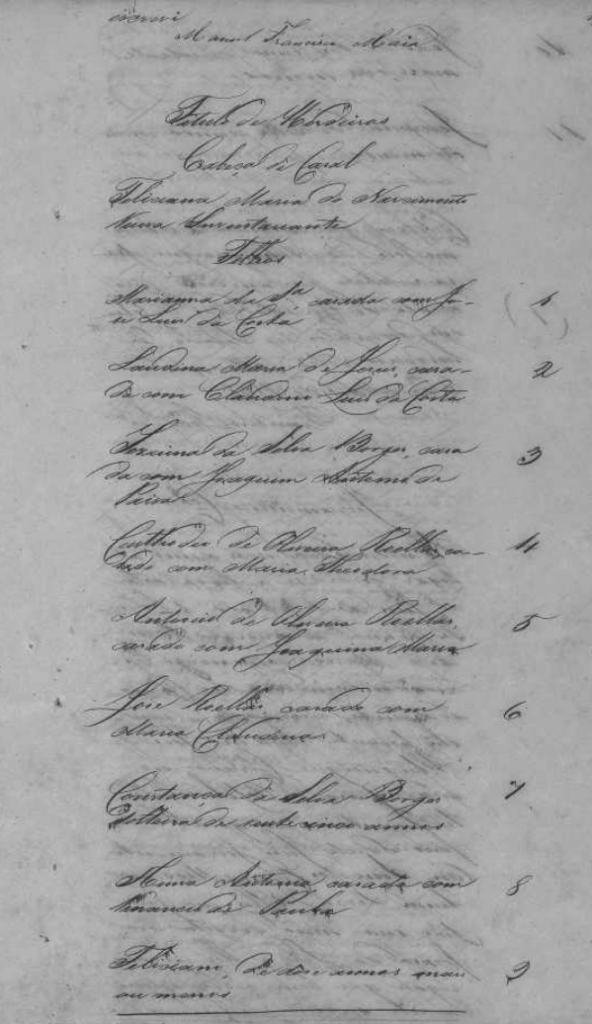 escrevi
Manoel Francisco Maia
Titulo de Herdeiros
Cabeça de Casal
Felisiana Maria do Nascimento
Viuva Inventariante
Filhos
Marianna da S.ª casada com Jo- 1
se Luis da Costa
Laudina Maria de Jesus, casa- 2
da com Claudino Luis da Costa
da Silva Borges, casa 3
da com Joaquim Antonio de
Paiva
Custodio de Oliveira Roellas, ca- 4
sado com Maria Theodora
Antonio de Oliveira Roellas, 5
casado com Joaquina Maria
Jose Roellas, casado com 6
Maria Claudina
Constança da Silva Borges 7
Solteira de vinte cinco annos
Anna Antonia, casada com 8
Venancio de Paula
Felisiano, de des annos mais 9
ou menos